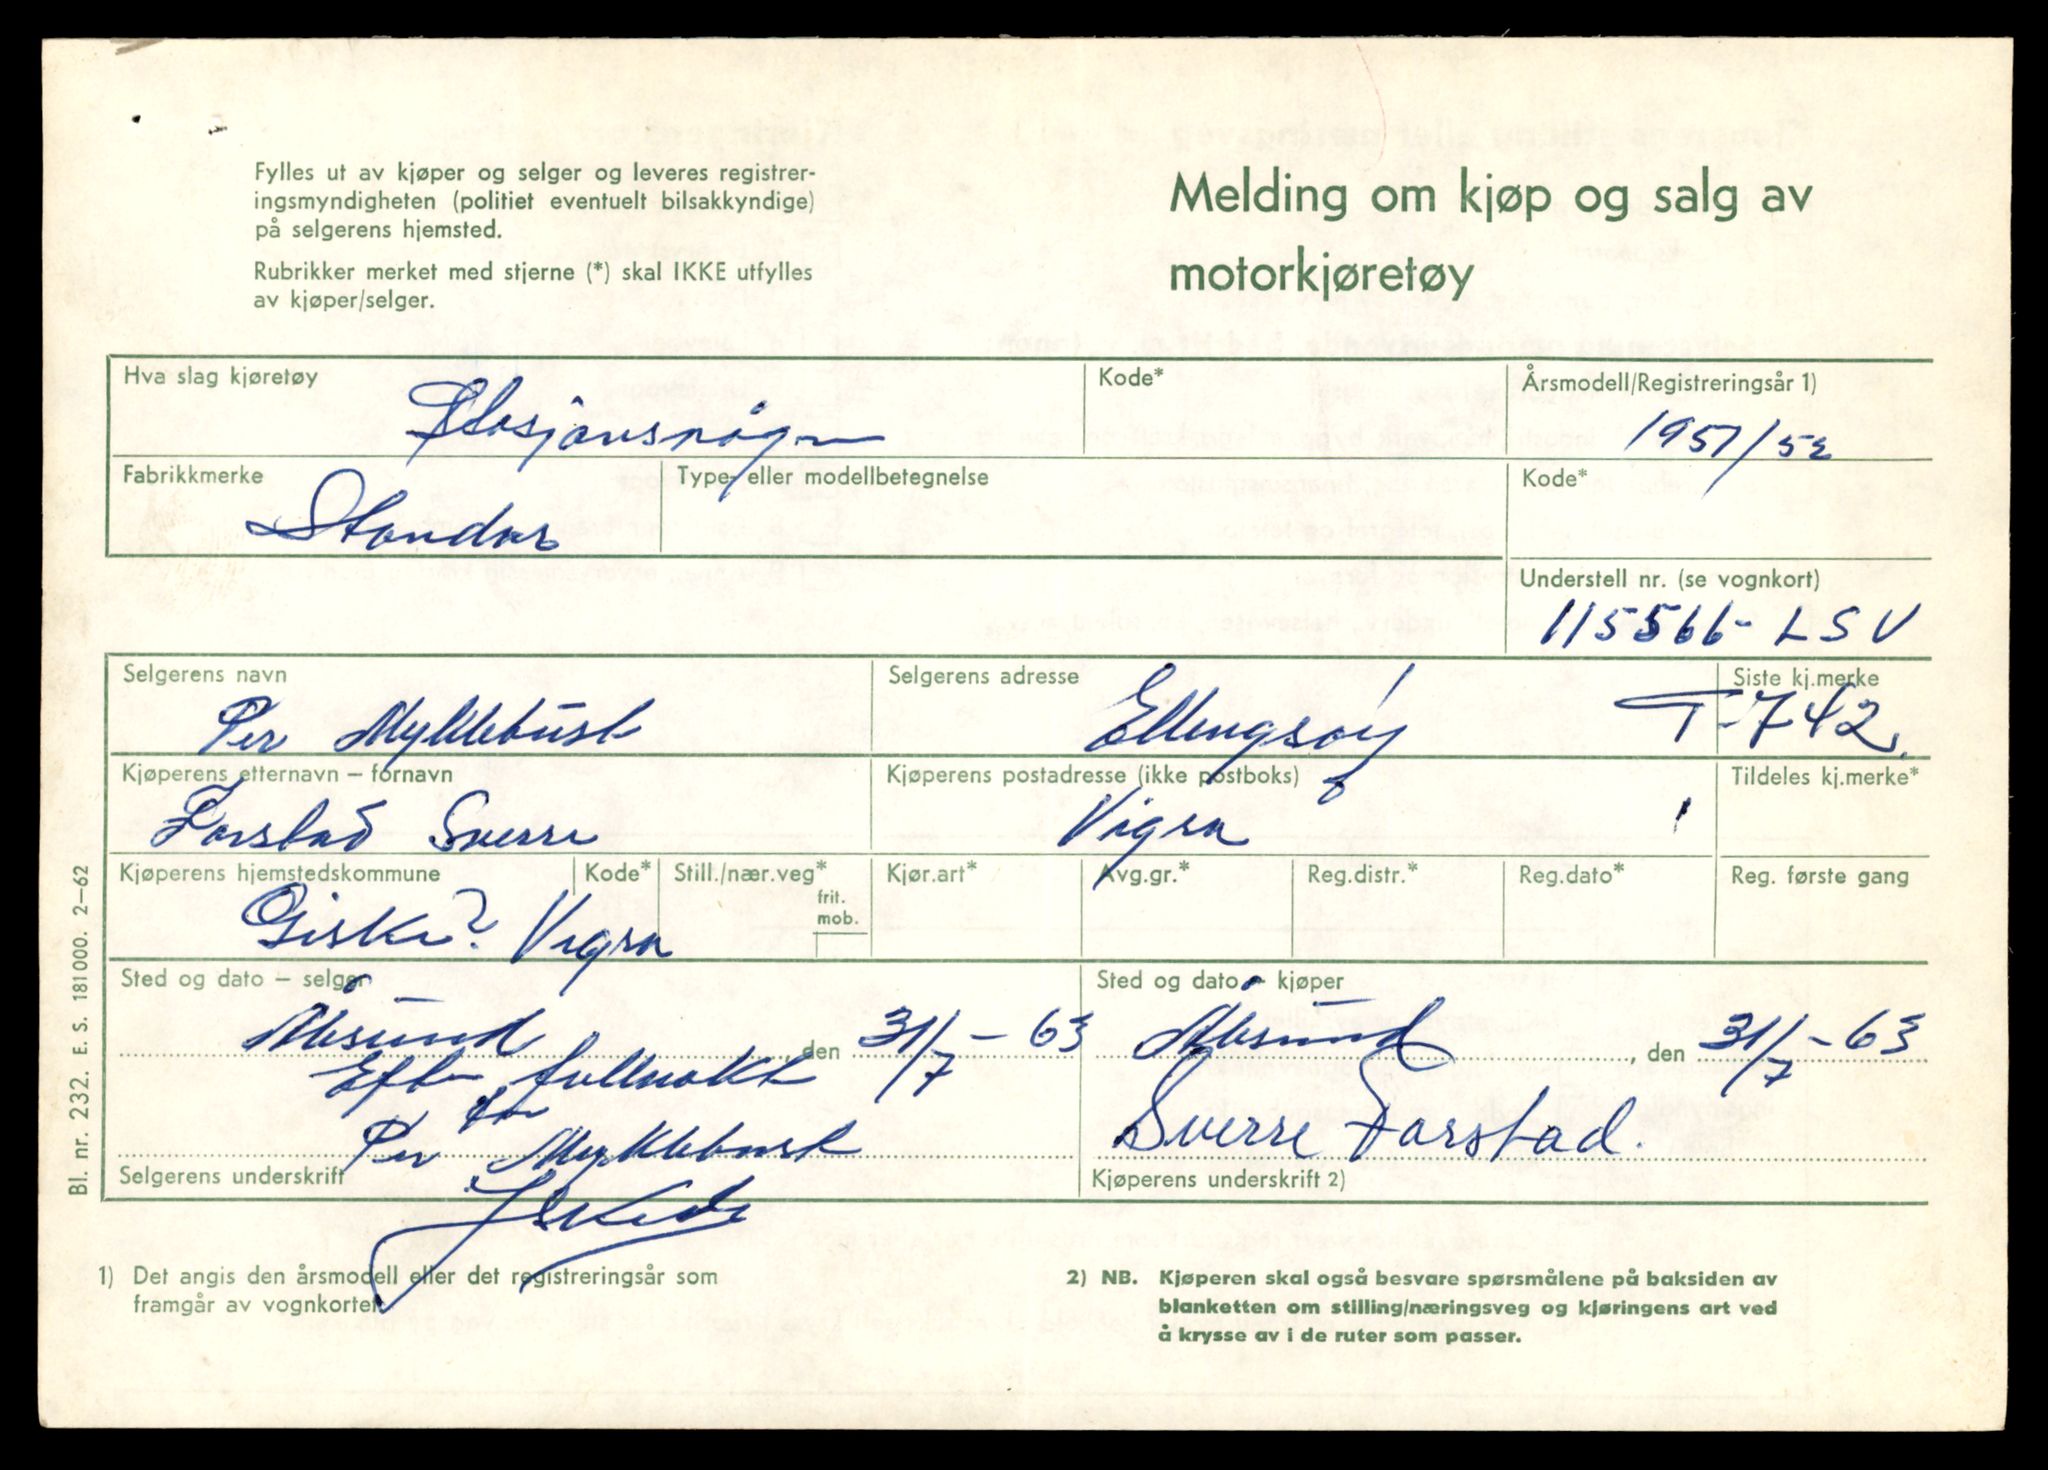 Fylles ut av kjøper og selger og leveres registrer-
ingsmyndigheten (politiet eventuelt bilsakkyndige)
på selgerens hjemsted.
Rubrikker merket med stjerne (*) skal IKKE utfylles
av kjøper/selger.
Melding om kjøp og salg av
motorkjøretøy
Hva slag kjøretøy
Stasjonsvogn
Kode*
Årsmodell/Registreringsår 1)
1951/52
Fabrikkmerke
Standar
Type- eller modellbetegnelse
Kode*
Understell nr. (se vognkort)
115566- LSV
Selgerens navn
Per Myklebust
Selgerens adresse
Ellingsøy
Siste kj.merke
T-742
Kjøperens etternavn – fornavn
Farstad Sverre
Kjøperens postadresse (ikke postboks)
Vigra
Tildeles kj.merke*
Kjøperens hjemstedskommune
Giske? Vigra
Kode*
Still./nær.veg*
frit.
mob.
Kjør.art*
Avg.gr.*
Reg.distr.*
Reg.dato*
Reg. første gang
Sted og dato – selger
Ålesund, den 31/7-63
Efter fullmakt
for
Per Myklebust
Selgerens underskrift
Sted og dato – kjøper
Ålesund, den 31/7-63
Sverre Farstad.
Kjøperens underskrift 2)
1) Det angis den årsmodell eller det registreringsår som
framgår av vognkortet.
2) NB. Kjøperen skal også besvare spørsmålene på baksiden av
blanketten om stilling/næringsveg og kjøringens art ved
å krysse av i de ruter som passer.
Bl. nr. 232. E. S. 181000. 2–62